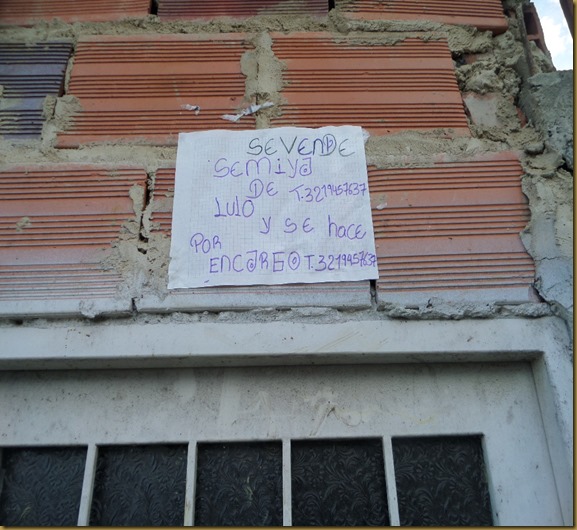 SE VENDE
SEMIYA
DE T.3219457637
LULO
Y SE hACE
POR
ENCARGO T.3219457637